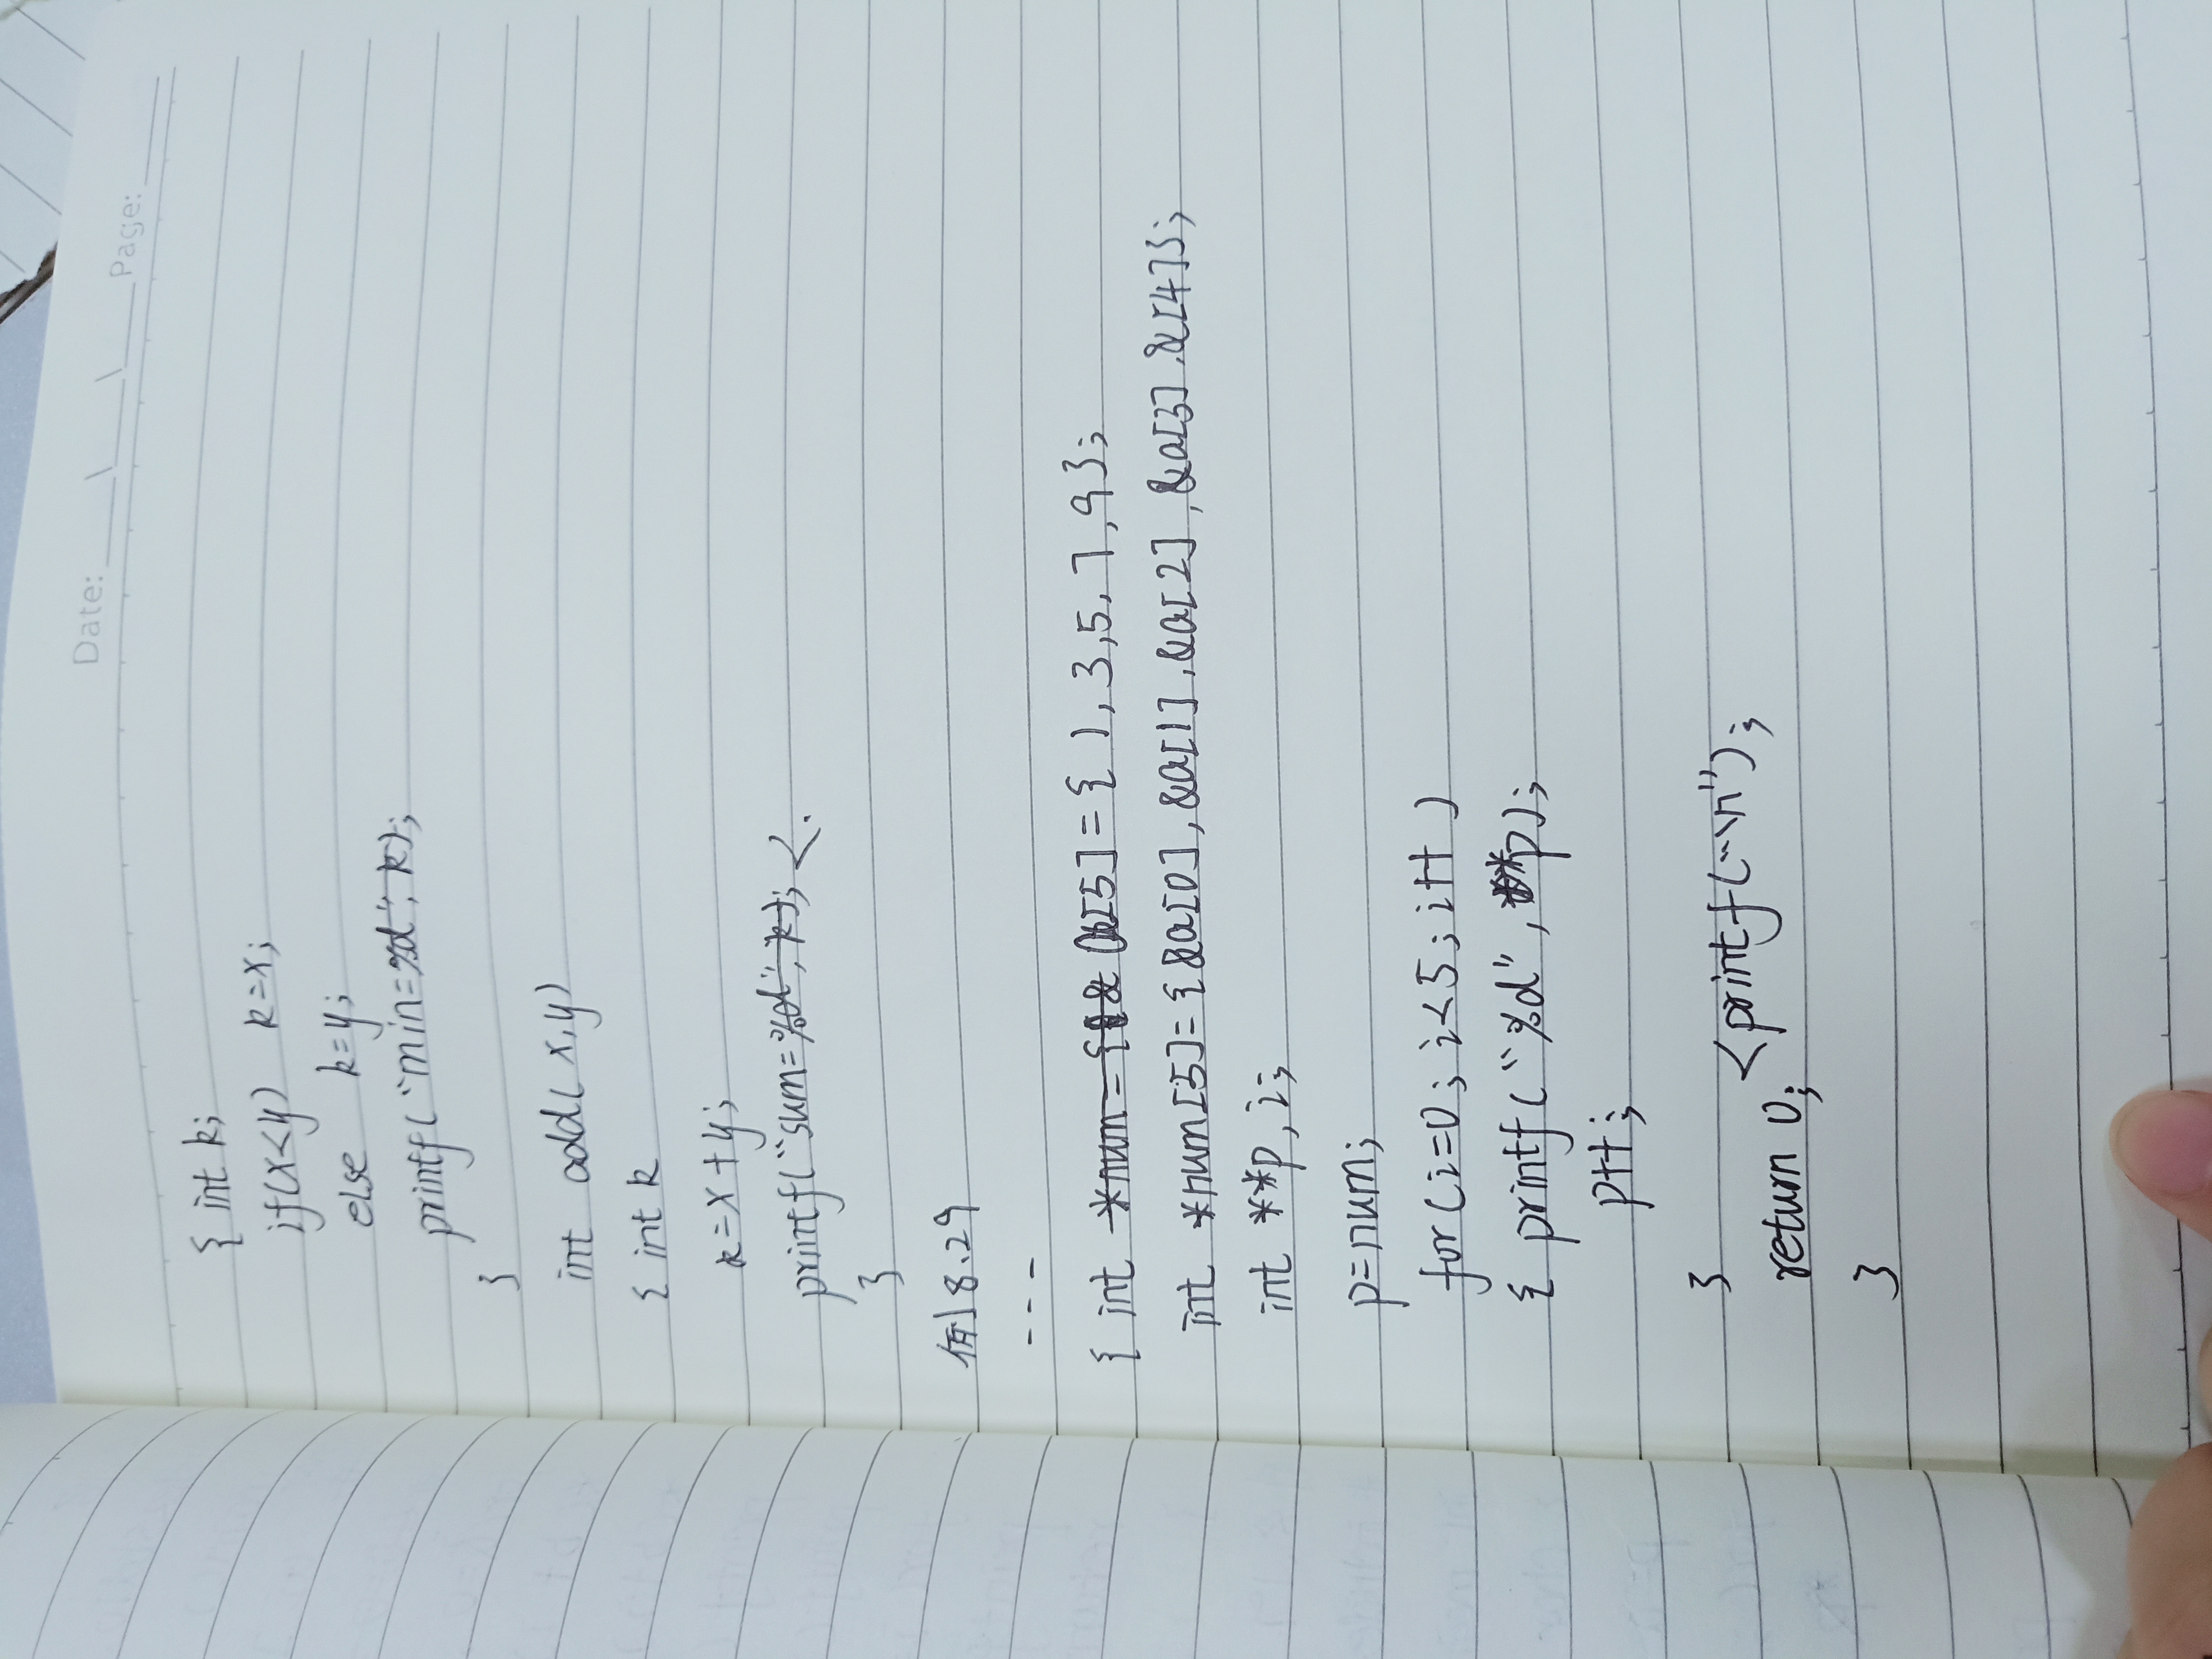 Date: Page:
{ int k;
if(x<y) k=x;
else k=y;
printf("min=%d",k);
}
int add(x,y)
{ int k
k=x+y;
printf("sum=%d",k);
}
例8.29
---
{ int a[5]={1,3,5,7,9};
int *num[5]={&a[0],&a[1],&a[2],&a[3],&[4]};
int **p,i;
p=num;
for(i=0;i<5;i++)
{ printf("%d",**p);
p++;
}
<printf("\n");
return 0;
}